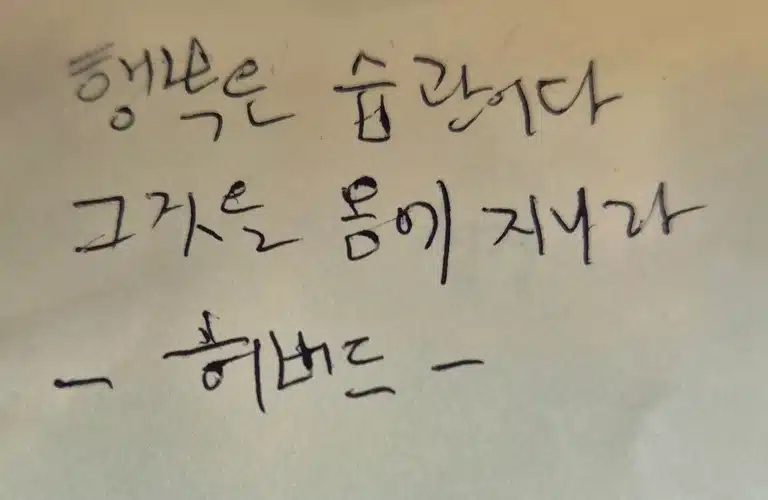 행복은 습관이다
그것은 몸에 지니라
- 허버드 -